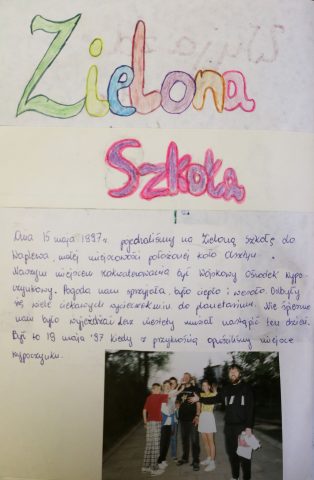 Zielona
Szkoła
Dnia 15 maja 1997r. pojechaliśmy na Zieloną Szkołę do
Waplewa, małej miejscowości położonej koło Olsztyna.
Naszym miejscem zakwaterowania był Wojskowy Ośrodek Wypo-
czynkowy. Pogoda nam sprzyjała, było ciepło i wesoło. Odbyły
się wiele ciekawych wycieczek m.in. do planetarium. Nie śpieszno
nam było wyjeżdżać lecz niestety musiał nastąpić ten dzień.
Był to 19 maja '97 kiedy z przykrością opuściliśmy miejsce
wypoczynku.